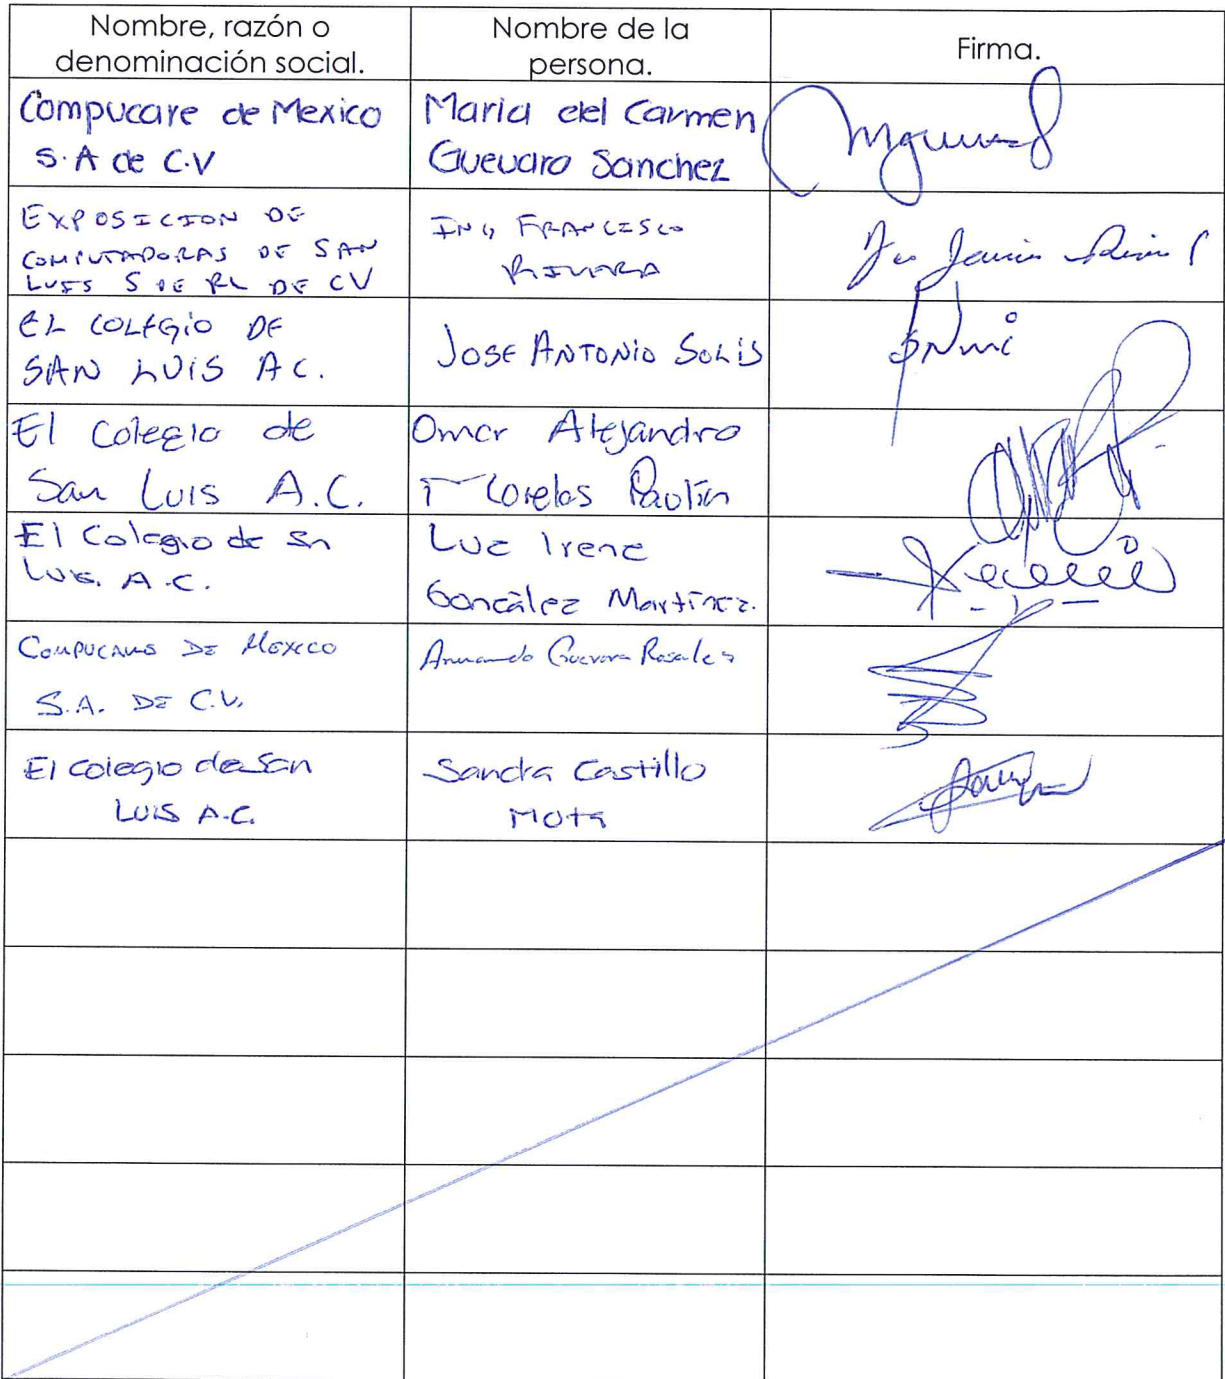 Nombre, razón o
denominación social.
Nombre de la
persona.
Firma.
Compucare de Mexico
S.A de C.V
Maria del Carmen
Guevara Sanchez
EXPOSICION DE
COMPUTADORAS DE SAN
LUIS S DE RL DE CV
ING FRANCISCO
RIVERA
EL COLEGIO DE
SAN LUIS AC.
JOSE ANTONIO SOLIS
El Colegio de
San Luis A.C.
Omar Alejandro
Morelos Paulín
El Colegio de Sn
Luis. A.C.
Luz Irene
González Martínez.
COMPUCARE DE MEXICO
S.A. DE C.V.
Armando Guevara Rosales
El Colegio de San
LUIS A.C.
Sandra Castillo
Mota